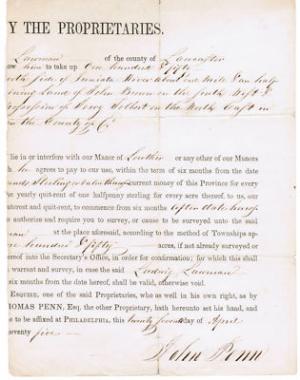 Y THE PROPRIETARIES.
Lawman of the county of Lancaster
him to take up One hundred & fifty
side of Juniata River about one Mile & an half
Land of John Brown on the South West &
of on the North East in
the County of
lie in or interfere with our Manor of Lowther or any other of our Manors
he agrees to pay to our use, within the term of six months from the date
Sterling current money of this Province for every
the yearly quit-rent of one halfpenny sterling for every acre thereof to us, our
interest and quit-rent, to commence from six months after date hereof
authorize and require you to survey, or cause to be surveyed unto the said
at the place aforesaid, according to the method of Townships ap-
hundred & fifty acres, if not already surveyed or
ereof into the Secretary's Office, in order for confirmation; for which this shall
warrant and survey, in case the said Ludwig Lawman
six months from the date hereof, shall be valid, otherwise void.
Esquire, one of the said Proprietaries, who as well in his own right, as by
HOMAS PENN, Esq. the other Proprietary, hath hereunto set his hand, and
to be affixed at Philadelphia, this twenty day of April
seventy five
John Penn